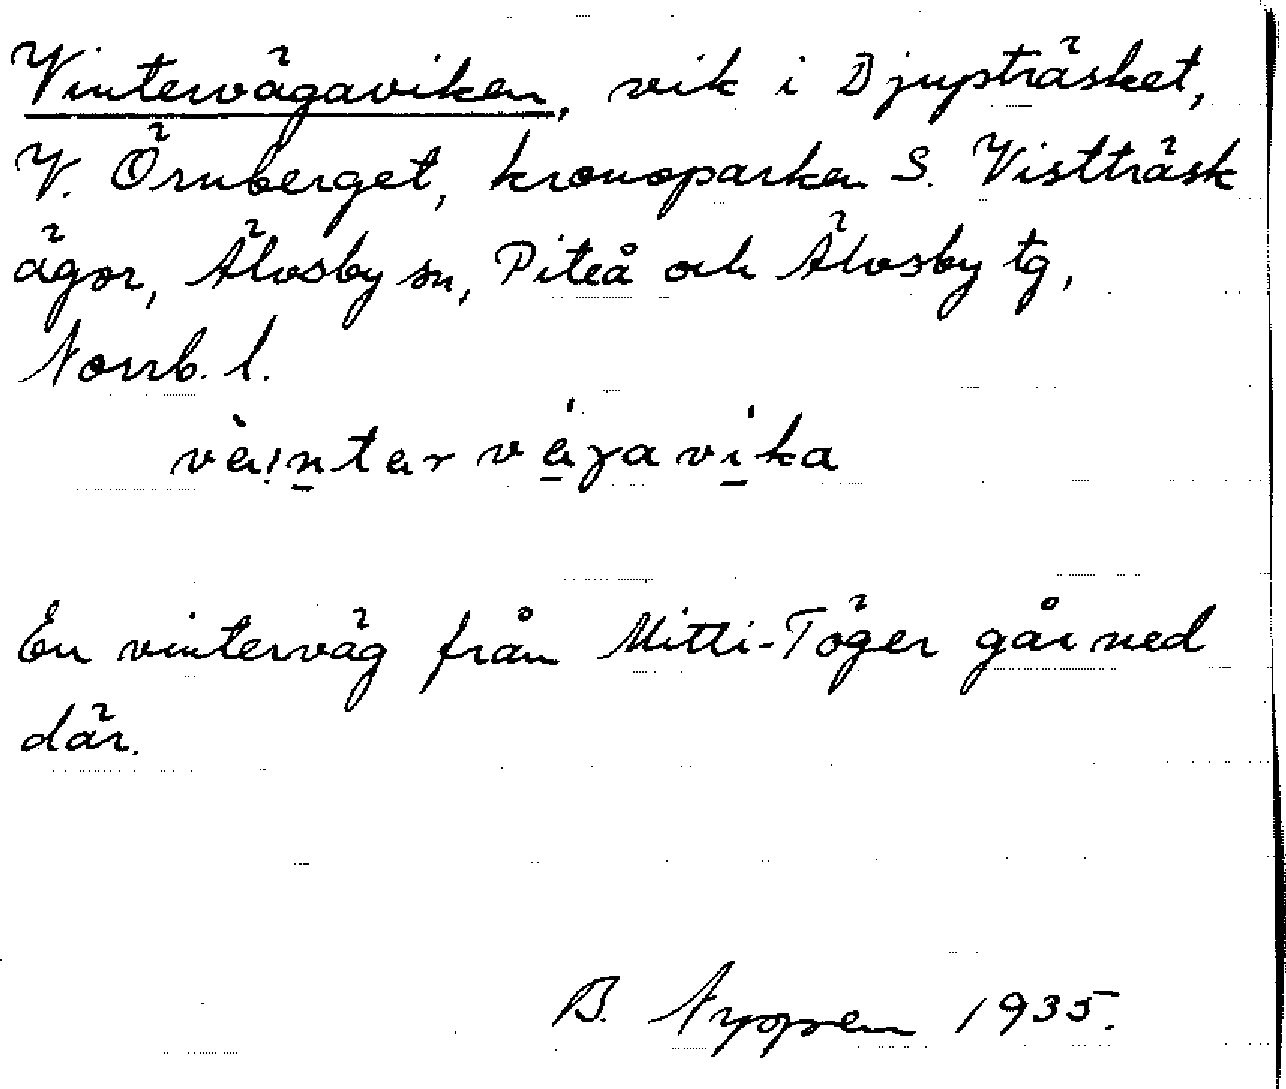 Vintervägaviken, vik i Djupträsket,
V. Örnberget, kronoparken S. Vistträsk
ägor, Älvsby sn, Piteå och Älvsby tg,
Norrb. l.
En vinterväg från Mitti-Töger går ned
där.
B. 1935.